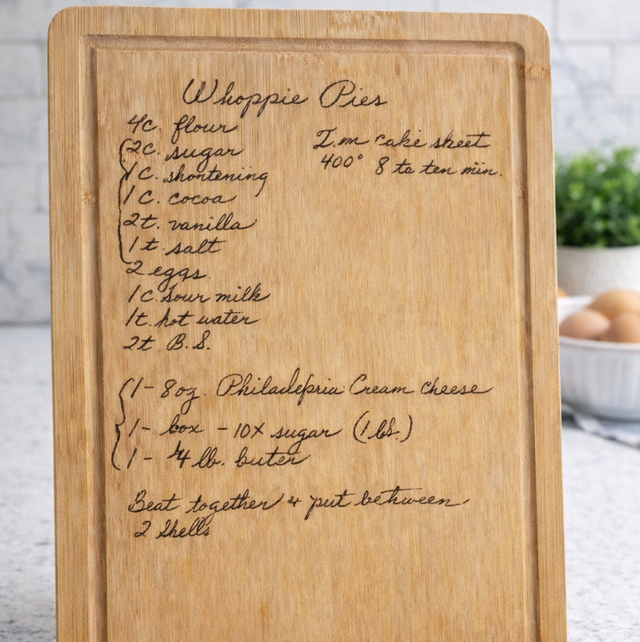 Whoppie Pies
4c. flour
2c. sugar
1c. shortening
1c. cocoa
2t. vanilla
1t. salt
2 eggs
1c. sour milk
1t. hot water
2t B.S.
I.m cake sheet
400° 8 to ten min.
1- 8oz. Philadelpria Cream cheese
1- box - 10X sugar (1 lbs.)
1- 1/4 lb. buter
Beat together & put between
2 Shells